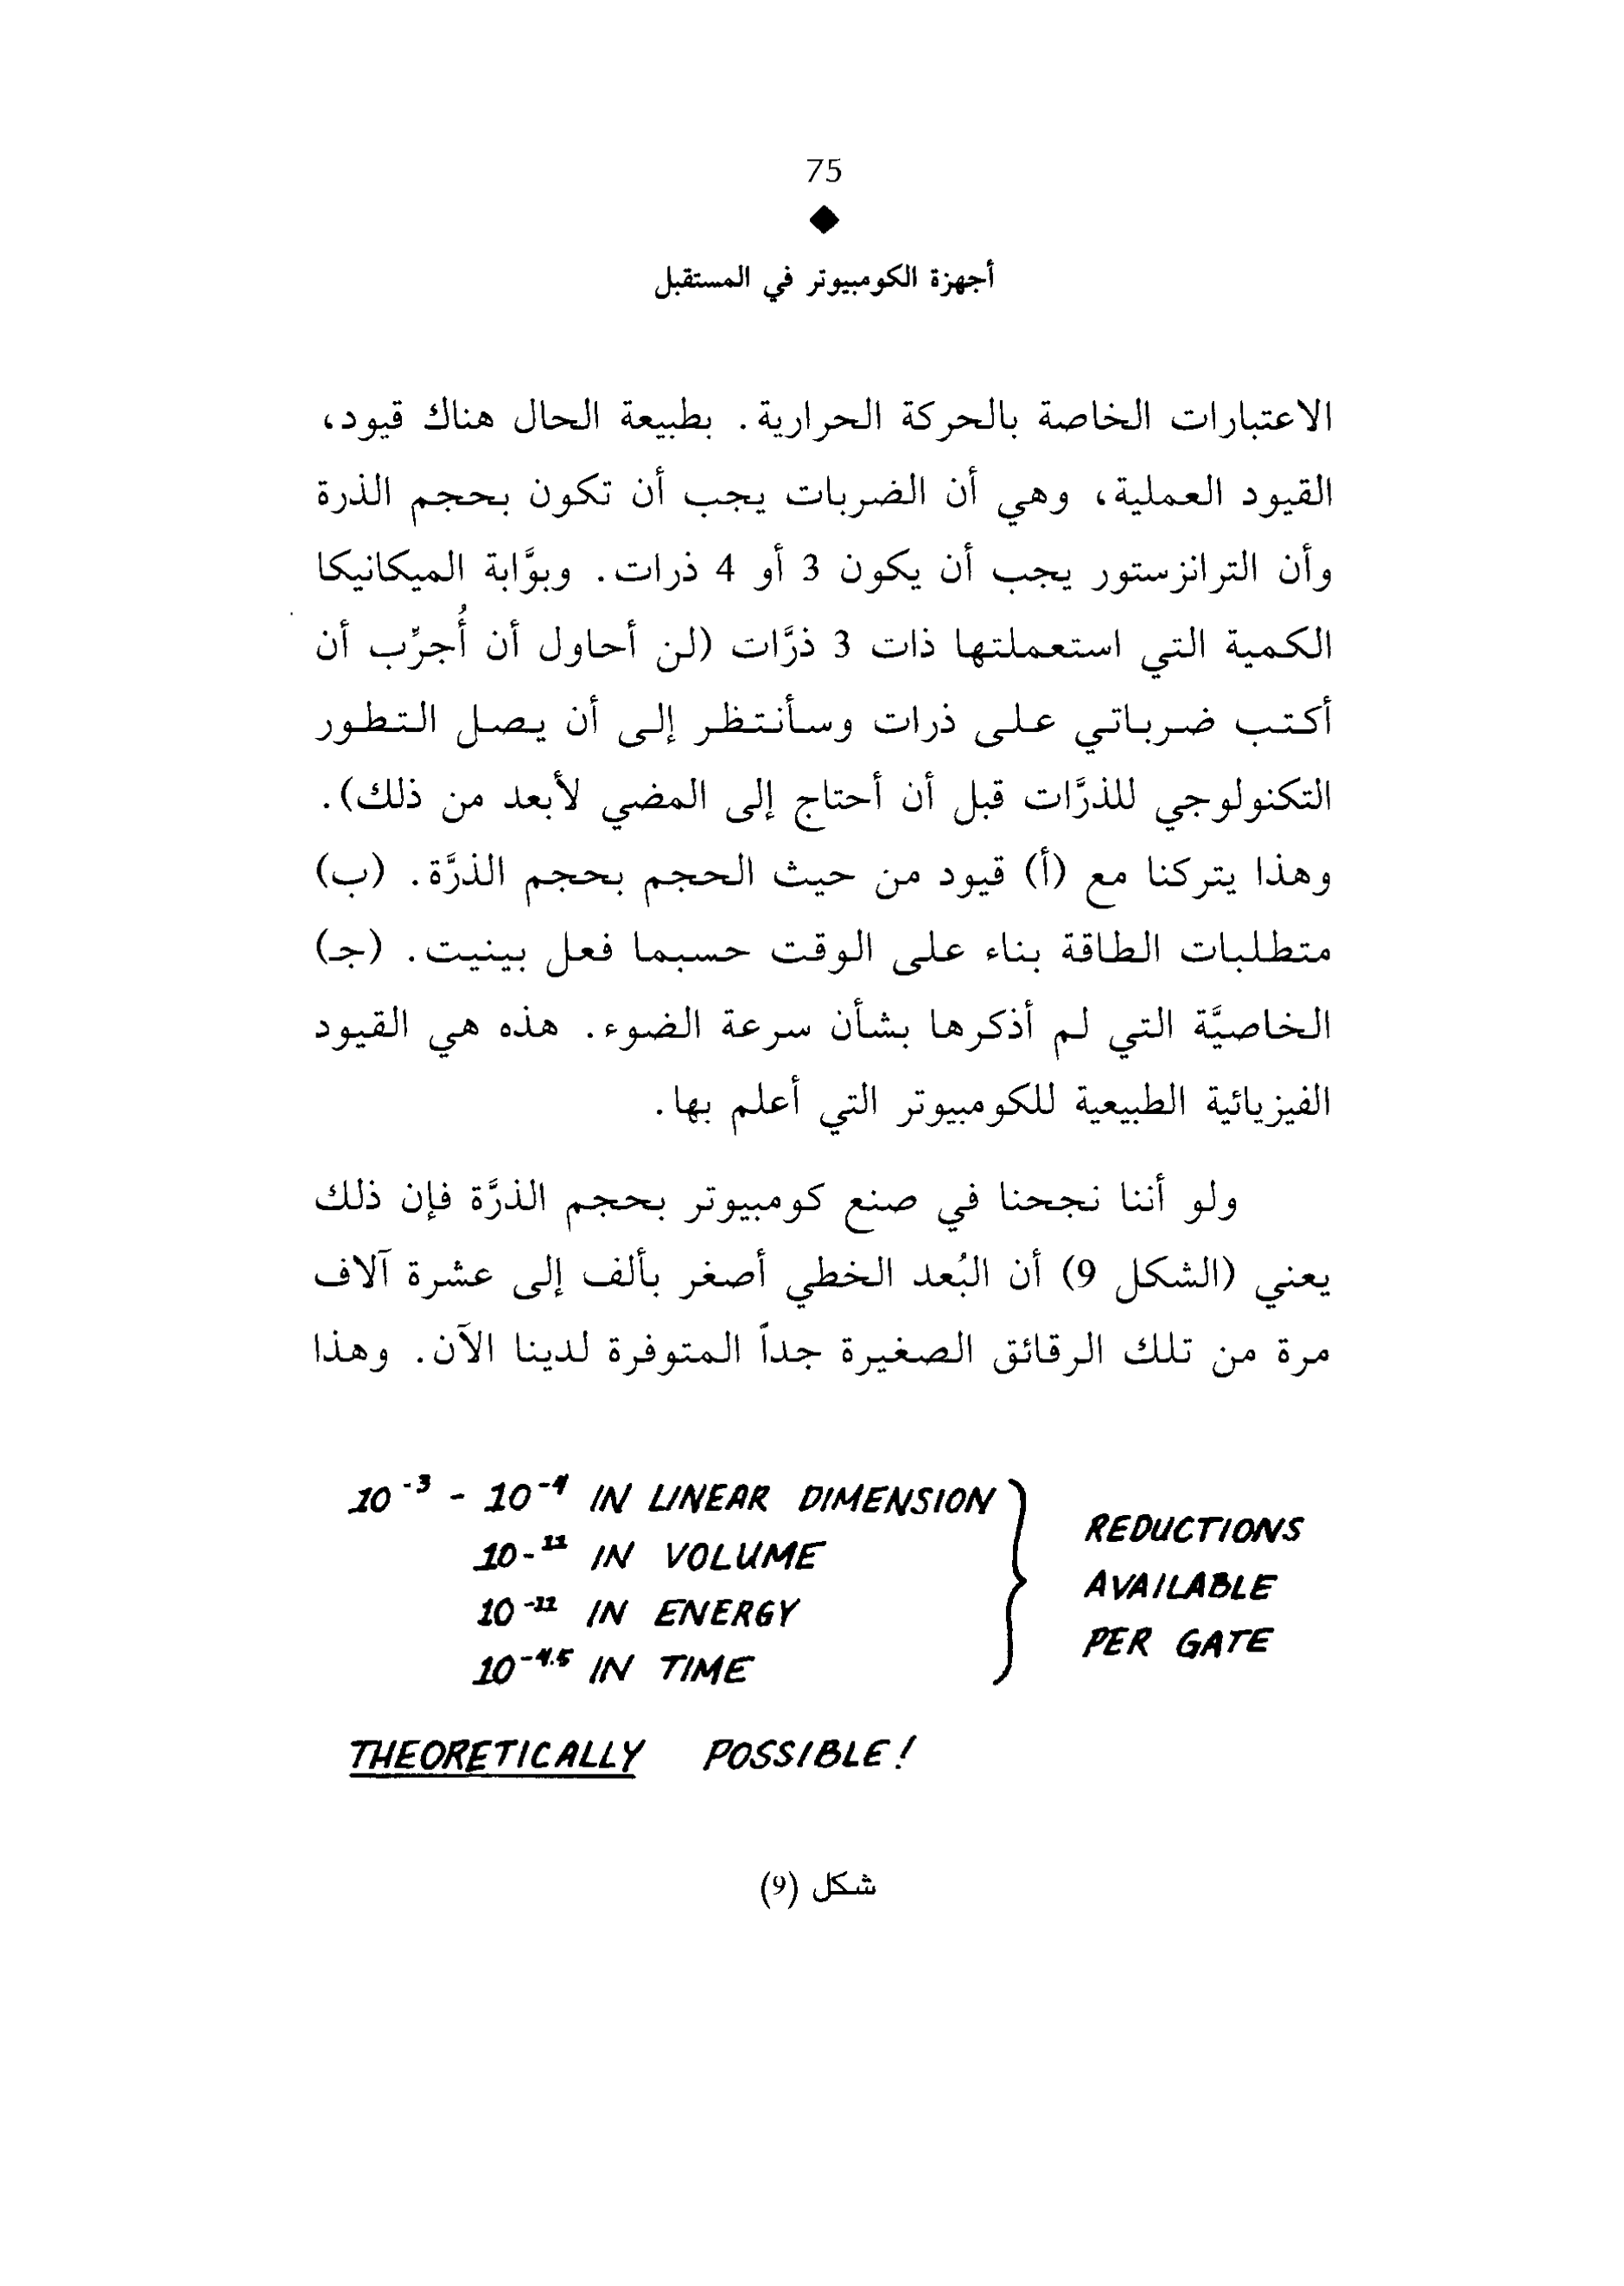 75
أجهزة الكومبيوتر في المستقبل
الاعتبارات الخاصة بالحركة الحرارية. بطبيعة الحال هناك قيود،
القيود العملية، وهي أن الضربات يجب أن تكون بحجم الذرة
وأن الترانزستور يجب أن يكون 3 أو 4 ذرات. وبوَّابة الميكانيكا
الكمية التي استعملتها ذات 3 ذرَّات (لن أحاول أن أُجرِّب أن
أكتب ضرباتي على ذرات وسأنتظر إلى أن يصل التطور
التكنولوجي للذرَّات قبل أن أحتاج إلى المضي لأبعد من ذلك).
وهذا يتركنا مع (أ) قيود من حيث الحجم بحجم الذرَّة. (ب)
متطلبات الطاقة بناء على الوقت حسبما فعل بينيت. (جـ)
الخاصيَّة التي لم أذكرها بشأن سرعة الضوء. هذه هي القيود
الفيزيائية الطبيعية للكومبيوتر التي أعلم بها.
ولو أننا نجحنا في صنع كومبيوتر بحجم الذرَّة فإن ذلك
يعني (الشكل 9) أن البُعد الخطي أصغر بألف إلى عشرة آلاف
مرة من تلك الرقائق الصغيرة جداً المتوفرة لدينا الآن. وهذا
10⁻³ - 10⁻⁴ IN LINEAR DIMENSION
10-¹¹ IN VOLUME
10⁻¹¹ IN ENERGY
10⁻⁴·⁵ IN TIME
REDUCTIONS
AVAILABLE
PER GATE
THEORETICALLY POSSIBLE!
شكل (9)